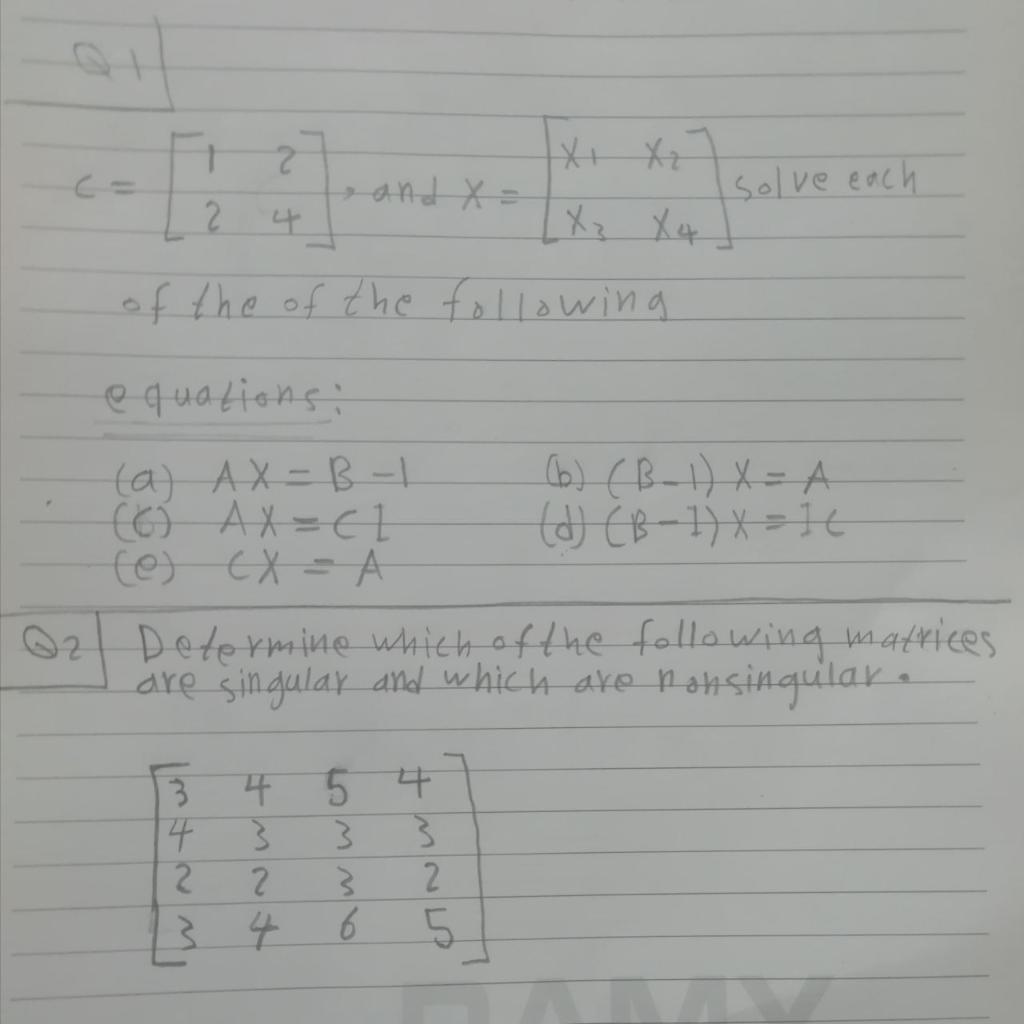 Q1
C = [1 2 , and X = [X1 X2 solve each
2 4] X3 X4]
of the of the following
equations:
(a) AX = B - 1 (b) (B - 1) X = A
(c) AX = CI (d) (B - I) X = IC
(e) CX = A
Q2 Determine which of the following matrices
are singular and which are nonsingular.
3 4 5 4
4 3 3 3
2 2 3 2
3 4 6 5